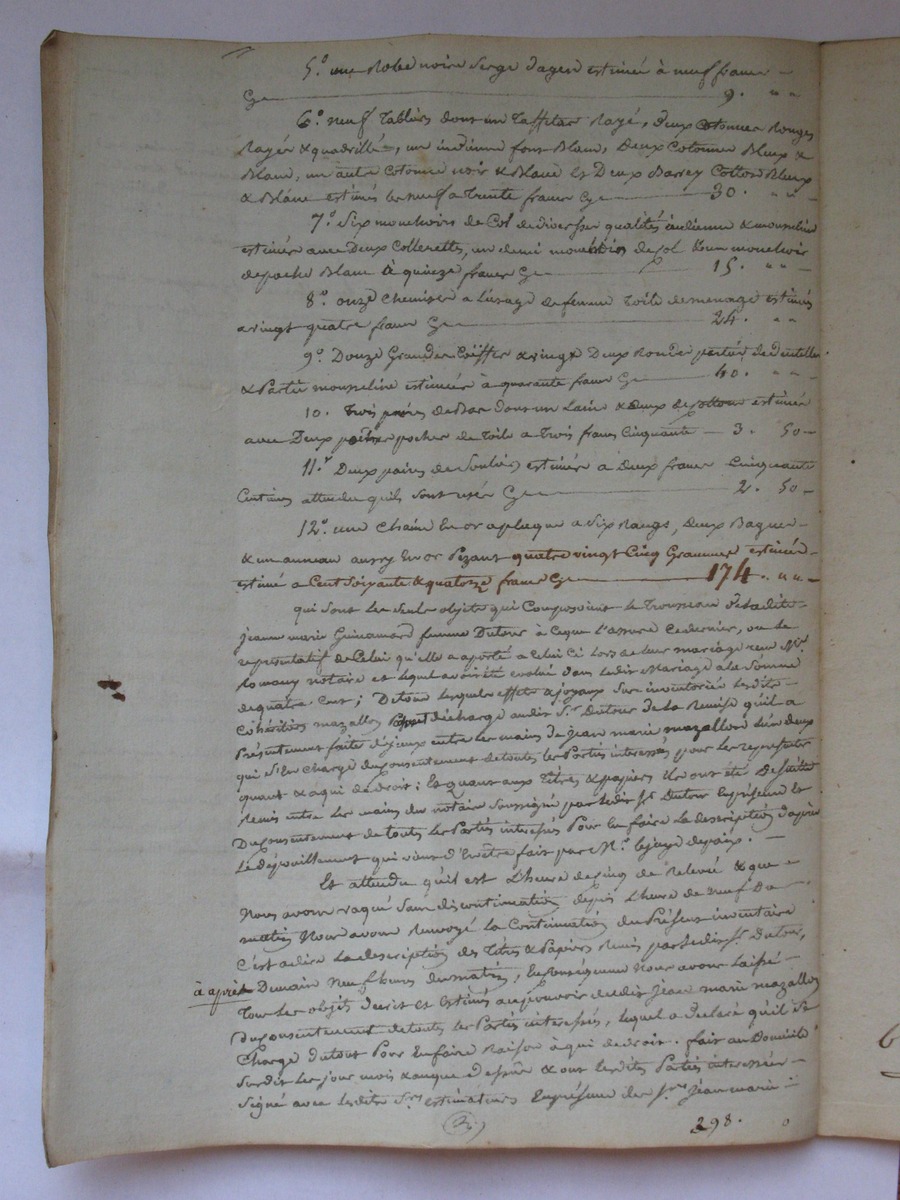 5.° une Robe noire Serge dagen estimée à neuf francs
Cy 9. " "
6.° neuf Tabliers dont un Taffetas Rayé, deux Cotonne Rouges
Rayée & quadrillé, un indienne fons Blanc, Deux Cotonne Bleux &
Blanc, un autre Cotonne noir & Blanc et Deux Cotton Bleux
& Blanc estimés les neuf a Trente francs Cy 30. " "
7.° Six mouchoirs de Col de diverses qualités indienne & mousseline
estimés avec Deux Collerettes, un demi mouchoir de sol & un mouchoir
de poche Blanc à quinze francs Cy 15. " "
8.° onze Chemises a L'usage de femme Toile de menage estimés
a vingt quatre francs Cy 24. " "
9.° Douze Grandes Coëffes & vingt Deux Rondes partie de dentelles
& Partie mousseline estimées à quarante francs Cy 40. " "
10. Trois paires de Bas dont un Laine & deux de Cotton estimés
avec Deux poches de Toile a Trois francs Cinquante 3. 50
11.° Deux paires de Souliers estimés à Deux francs Cinquante
Centimes attendu quils sont usés Cy 2. 50
12.° une Chaine en or a plaque a Six Rangs, Deux Bagues
& un anneau aussy en or Pezant quatre vingt Cinq Grammes estimés
estimé a Cent Soixante & quatorze francs Cy 174. " "
qui sont les seuls objets qui Composoient le Trousseau de ladite
Jeanne marie Guinamard femme Dutour à ce que l'assure Ce dernier, ou le
representatif de Celui qu'elle a aporté a Celui Ci lors de leur mariage reçu M.e
Romany notaire et lequel avoit été evalué dans ledit Mariage a la Somme
de quatre Cent; De tous lesquels effets & joyaux sus inventoriés lesdits
Cohéritiers mazallon déchargé audit S.r Dutour de La Remise qu'il a
Présentement faite d'iceux entre les mains de Jean marie mazallon L'un deux
qui s'en Charge du Consentement de toutes les Parties interessées pour les representer
quant & a qui de Droit: Et quant aux Titres & papiers ils ont été
Remis entre les mains du notaire Soussigné par ledit S.r Dutour En présence et
Du Consentement de toutes les Parties interessés Pour En faire La description d'après
Le dépouillement qui vient d'en être fait par M.r le juge de paix.
Et attendu qu'il est L'heure de cinq de Relevé & que
Nous avons vaqué sans discontinuation depuis L'heure de neuf Du
matin Nous avons Renvoyé la Continuation du Présent inventaire
C'est a dire La description des Titres & Papiers Remis par ledit S.r Dutour,
à après Demain neuf heures du matin, En Conséquence Nous avons Laissé
Tous les objets décrit et Estimés au pouvoir dudit Jean marie mazallon
du Consentement de toutes les Parties interessés, lequel a Declaré qu'il se
Charge du tout Pour En faire Raison à qui de droit. fait au Domicile
Susdit les jour mois & an que dessus & ont lesdites Parties interessées
Signé avec lesdits S.rs estimateurs En présence des S.rs Jean marie
298. 0